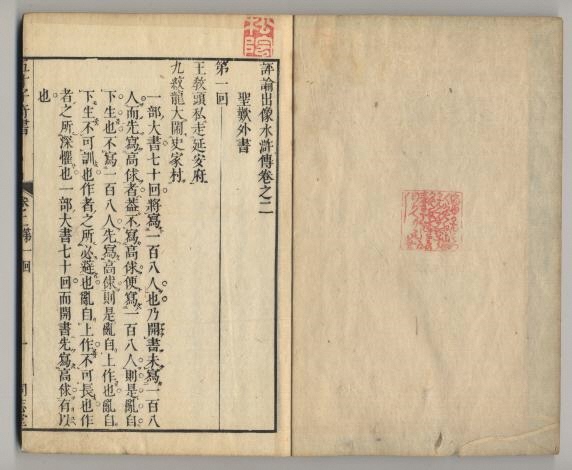 松陰
評論出像水滸傳卷之二
聖歎外書
第一回
王教頭私走延安府
九紋龍大鬧史家村
一部大書七十回將寫一百八人也乃開書未寫一百八
人而先寫高俅者蓋不寫高俅便寫一百八人則是亂自
下生也不寫一百八人先寫高俅則是亂自上作也亂自
下生不可訓也作者之所必避也亂自上作不可長也作
者之所深懼也一部大書七十回而開書先寫高俅有以
也